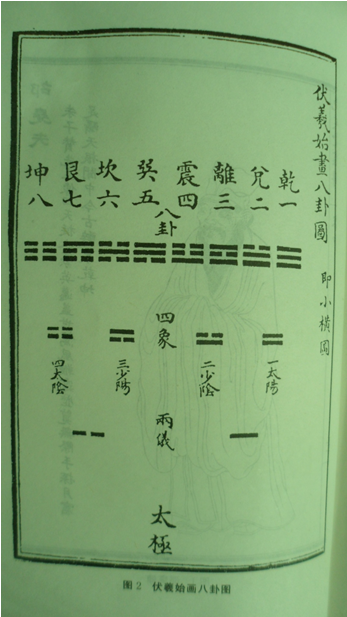 伏羲始畫八卦圖
即小橫圖
乾一
兌二
離三
震四
巽五
坎六
艮七
坤八
八卦
四象
一太陽
二少陰
三少陽
四太陰
兩儀
太極
图 2 伏羲始画八卦图